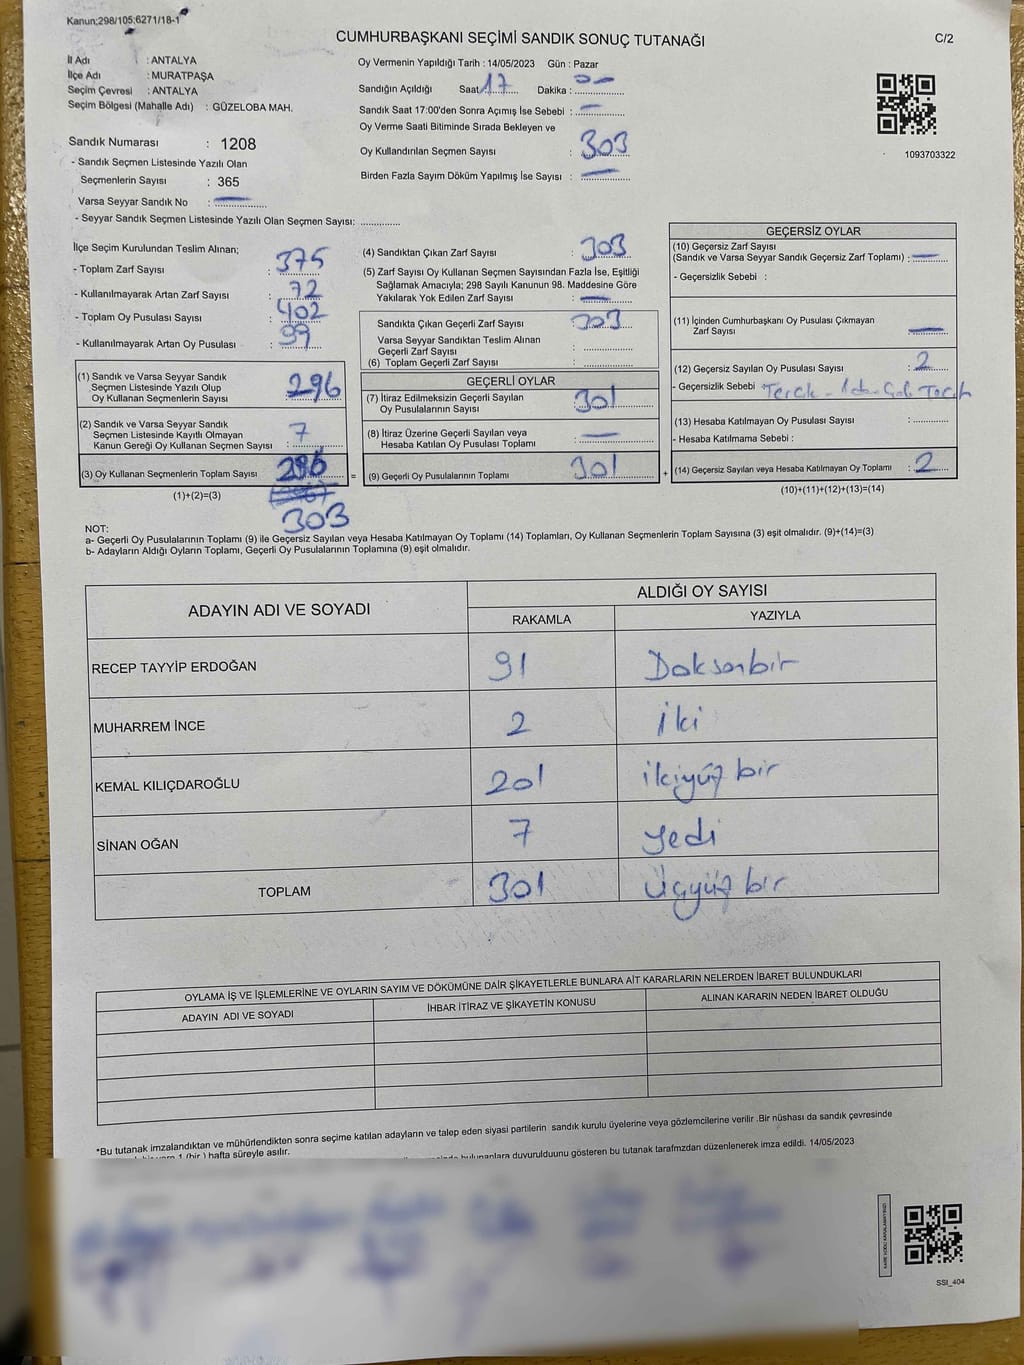 Kanun;298/105;6271/18-1
CUMHURBAŞKANI SEÇİMİ SANDIK SONUÇ TUTANAĞI
C/2
İl Adı : ANTALYA
İlçe Adı : MURATPAŞA
Seçim Çevresi : ANTALYA
Seçim Bölgesi (Mahalle Adı) : GÜZELOBA MAH.
Sandık Numarası : 1208
- Sandık Seçmen Listesinde Yazılı Olan
Seçmenlerin Sayısı : 365
Varsa Seyyar Sandık No : —
- Seyyar Sandık Seçmen Listesinde Yazılı Olan Seçmen Sayısı: ..............
Oy Vermenin Yapıldığı Tarih : 14/05/2023 Gün : Pazar
Sandığın Açıldığı Saat 17 Dakika :
Sandık Saat 17:00'den Sonra Açımış İse Sebebi : —
Oy Verme Saati Bitiminde Sırada Bekleyen ve
Oy Kullandırılan Seçmen Sayısı : 303
Birden Fazla Sayım Döküm Yapılmış İse Sayısı : —
1093703322
İlçe Seçim Kurulundan Teslim Alınan;
- Toplam Zarf Sayısı : 375
- Kullanılmayarak Artan Zarf Sayısı : 72
- Toplam Oy Pusulası Sayısı : 402
- Kullanılmayarak Artan Oy Pusulası : 99
(1) Sandık ve Varsa Seyyar Sandık
Seçmen Listesinde Yazılı Olup
Oy Kullanan Seçmenlerin Sayısı : 296
(2) Sandık ve Varsa Seyyar Sandık
Seçmen Listesinde Kayıtlı Olmayan
Kanun Gereği Oy Kullanan Seçmen Sayısı : 7
(3) Oy Kullanan Seçmenlerin Toplam Sayısı : 296
(1)+(2)=(3)
303
(4) Sandıktan Çıkan Zarf Sayısı : 303
(5) Zarf Sayısı Oy Kullanan Seçmen Sayısından Fazla İse, Eşitliği
Sağlamak Amacıyla; 298 Sayılı Kanunun 98. Maddesine Göre
Yakılarak Yok Edilen Zarf Sayısı : —
Sandıkta Çıkan Geçerli Zarf Sayısı : 303
Varsa Seyyar Sandıktan Teslim Alınan
Geçerli Zarf Sayısı : ..............
(6) Toplam Geçerli Zarf Sayısı : ..............
GEÇERLİ OYLAR
(7) İtiraz Edilmeksizin Geçerli Sayılan
Oy Pusulalarının Sayısı : 301
(8) İtiraz Üzerine Geçerli Sayılan veya
Hesaba Katılan Oy Pusulası Toplamı : —
= (9) Geçerli Oy Pusulalarının Toplamı : 301 +
GEÇERSİZ OYLAR
(10) Geçersiz Zarf Sayısı
(Sandık ve Varsa Seyyar Sandık Geçersiz Zarf Toplamı) : —
- Geçersizlik Sebebi :
(11) İçinden Cumhurbaşkanı Oy Pusulası Çıkmayan
Zarf Sayısı —
(12) Geçersiz Sayılan Oy Pusulası Sayısı : 2
- Geçersizlik Sebebi :
(13) Hesaba Katılmayan Oy Pusulası Sayısı : ..............
- Hesaba Katılmama Sebebi :
(14) Geçersiz Sayılan veya Hesaba Katılmayan Oy Toplamı : 2
(10)+(11)+(12)+(13)=(14)
NOT:
a- Geçerli Oy Pusulalarının Toplamı (9) ile Geçersiz Sayılan veya Hesaba Katılmayan Oy Toplamı (14) Toplamları, Oy Kullanan Seçmenlerin Toplam Sayısına (3) eşit olmalıdır. (9)+(14)=(3)
b- Adayların Aldığı Oyların Toplamı, Geçerli Oy Pusulalarının Toplamına (9) eşit olmalıdır.
ADAYIN ADI VE SOYADI
ALDIĞI OY SAYISI
RAKAMLA YAZIYLA
RECEP TAYYİP ERDOĞAN 91 Doksanbir
MUHARREM İNCE 2 İki
KEMAL KILIÇDAROĞLU 201 ikiyüz bir
SİNAN OĞAN 7 yedi
TOPLAM 301 Üçyüz bir
OYLAMA İŞ VE İŞLEMLERİNE VE OYLARIN SAYIM VE DÖKÜMÜNE DAİR ŞİKAYETLERLE BUNLARA AİT KARARLARIN NELERDEN İBARET BULUNDUKLARI
ADAYIN ADI VE SOYADI İHBAR İTİRAZ VE ŞİKAYETİN KONUSU ALINAN KARARIN NEDEN İBARET OLDUĞU
*Bu tutanak imzalandıktan ve mühürlendikten sonra seçime katılan adayların ve talep eden siyasi partilerin sandık kurulu üyelerine veya gözlemcilerine verilir .Bir nüshası da sandık çevresinde
1 (bir ) hafta süreyle asılır.
bulunanlara duyurulduunu gösteren bu tutanak tarafmzdan düzenlenerek imza edildi. 14/05/2023
SSI_404